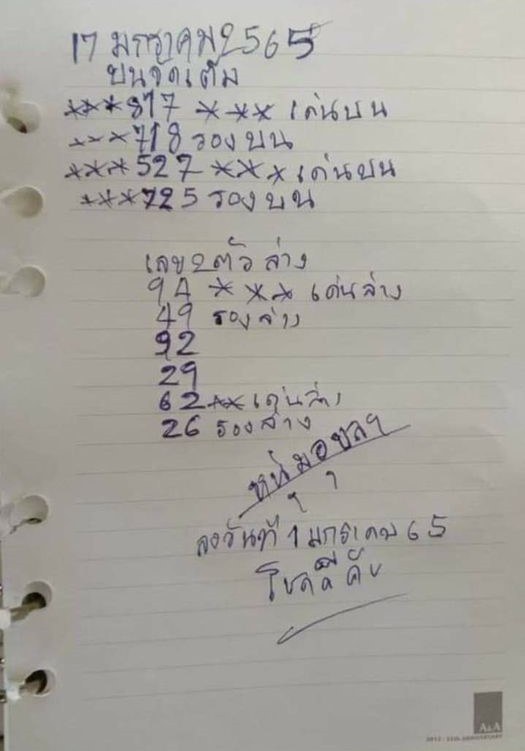 17 มกราคม 2565
บนจัดเต็ม
***817 *** เด่นบน
***718 รองบน
***527 *** เด่นบน
***725 รองบน
เลข 2 ตัว ล่าง
94 *** เด่นล่าง
49 รองล่าง
92
29
62 ** เด่นล่าง
26 รองล่าง
ลงวันที่ 1 มกราคม 65
โชคดีคับ
A&A